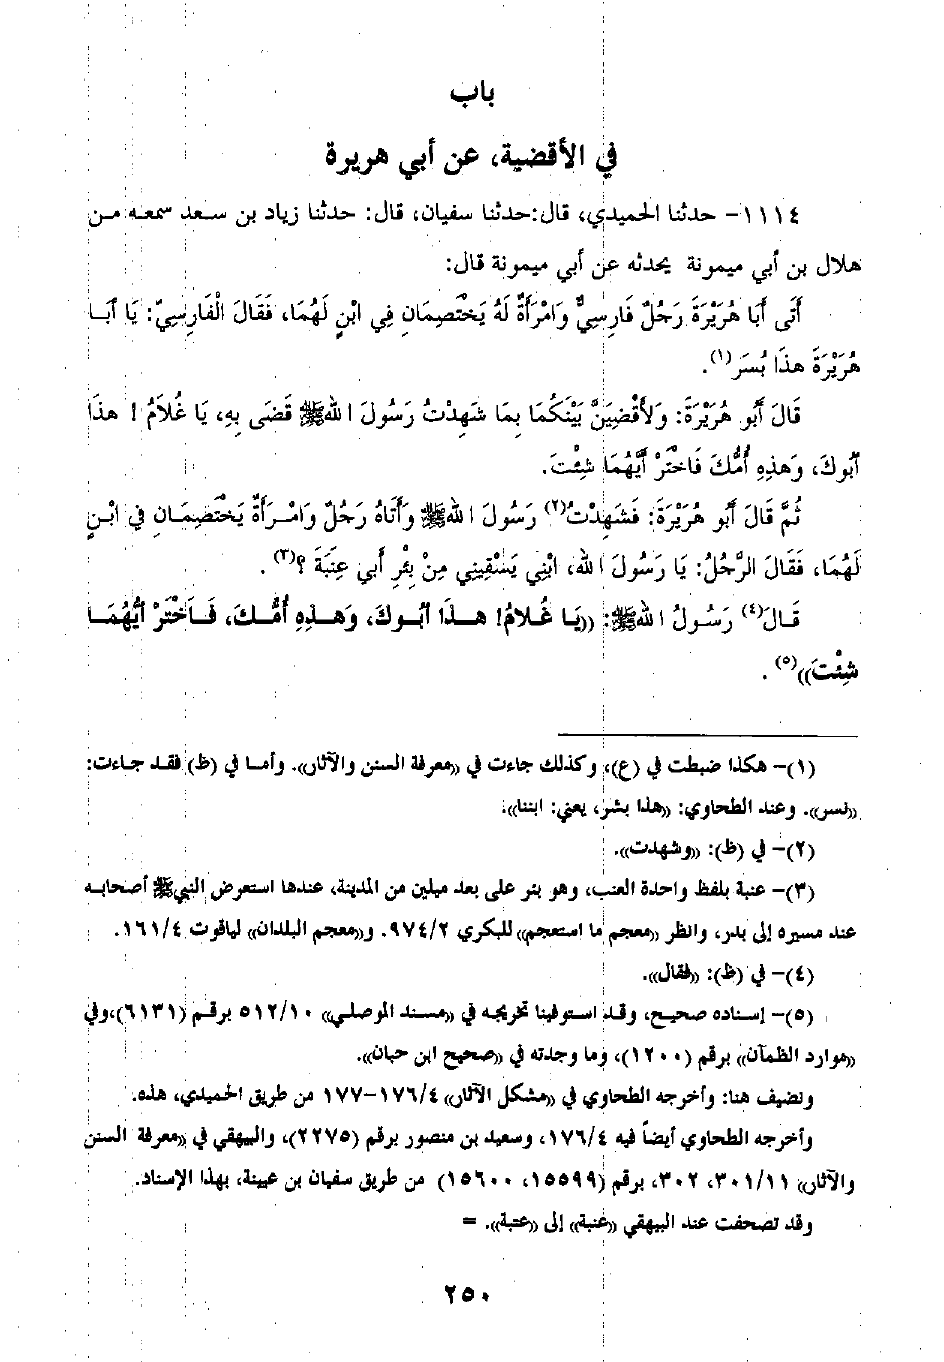 باب
في الأقضية، عن أبي هريرة
١١١٤- حدثنا الحميدي، قال:حدثنا سفيان، قال: حدثنا زياد بن سعد سمعه من
هلال بن أبي ميمونة يحدثه عن أبي ميمونة قال:
أَتَى أَبَا هُرَيْرَةَ رَجُلٌ فَارِسِيٌّ وَامْرَأَةٌ لَهُ يَخْتَصِمَانِ فِي ابْنٍ لَهُمَا، فَقَالَ الْفَارِسِيّ: يَا أَبَا
هُرَيْرَةَ هذَا بُسَر(١).
قَالَ أَبُو هُرَيْرَةَ: وَلأَقْضِيَنَّ بَيْنَكُمَا بِمَا شَهِدْتُ رَسُولَ اللهﷺ قَضَى بِهِ، يَا غُلاَمُ ! هذَا
أَبُوكَ، وَهَذِهِ أُمُّكَ فَاخْتَرْ أَيَّهُمَا شِئْتَ.
ثُمَّ قَالَ أَبُو هُرَيْرَةَ: فَشَهِدْتُ(٢) رَسُولَ اللهﷺ وَأَتَاهُ رَجُلٌ وَامْرَأَةٌ يَخْتَصِمَانِ فِي ابْنٍ
لَهُمَا، فَقَالَ الرَّجُلُ: يَا رَسُولَ الله، ابْنِي يَسْقِينِي مِنْ بِئْرِ أَبِي عِنَبَةَ ؟(٣) .
قَالَ(٤) رَسُولُ اللهﷺ: ((يَا غُلاَمُ! هذَا أَبُوكَ، وَهَذِهِ أُمُّكَ، فَاخْتَرْ أَيَّهُمَا
شِئْتَ))(٥) .
(١)- هكذا ضبطت في (ع)، وكذلك جاءت في «معرفة السنن والآثار». وأما في (ظ) فقد جاءت:
«نسر». وعند الطحاوي: «هذا بشر، يعني: ابننا».
(٢)- في (ظ): «وشهدت».
(٣)- عنبة بلفظ واحدة العنب، وهو بئر على بعد ميلين من المدينة، عندها استعرض النبيﷺ أصحابه
عند مسيره إلى بدر، وانظر «معجم ما استعجم» للبكري ٩٧٤/٢. و«معجم البلدان» لياقوت ١٦١/٤.
(٤)- في (ظ): «فقال».
(٥)- إسناده صحيح، وقد استوفينا تخريجه في «مسند الموصلي» ٥١٢/١٠ برقم (٦١٣١)،وفي
«موارد الظمآن» برقم (١٢٠٠)، وما وجدته في «صحيح ابن حبان».
ونضيف هنا: وأخرجه الطحاوي في «مشكل الآثار» ١٧٦/٤-١٧٧ من طريق الحميدي، هذه.
وأخرجه الطحاوي أيضاً فيه ١٧٦/٤، وسعيد بن منصور برقم (٢٢٧٥)، والبيهقي في «معرفة السنن
والآثار» ٣٠١/١١، ٣٠٢، برقم (١٥٥٩٩، ١٥٦٠٠) من طريق سفيان بن عيينة، بهذا الإسناد.
وقد تصحفت عند البيهقي «عنبة» إلى «عتبة». =
٢٥٠